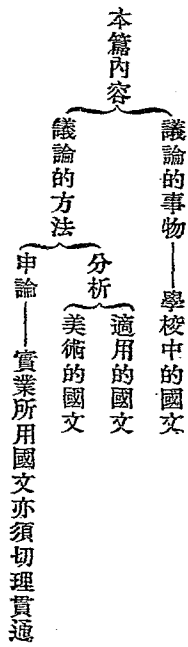 本篇內容
議論的事物——學校中的國文
議論的方法
分析
適用的國文
美術的國文
申論——實業所用國文亦須切理貫通